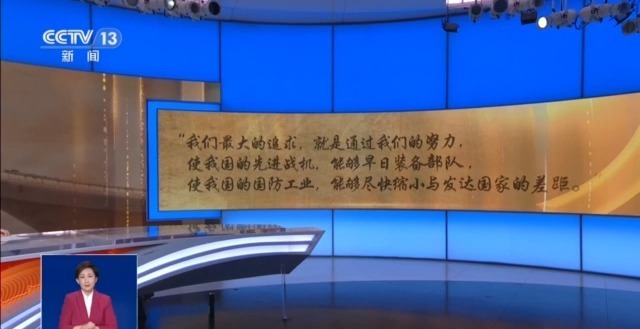 CCTV 13
新闻
“我们最大的追求，就是通过我们的努力，
使我国的先进战机，能够早日装备部队，
使我国的国防工业，能够尽快缩小与发达国家的差距。